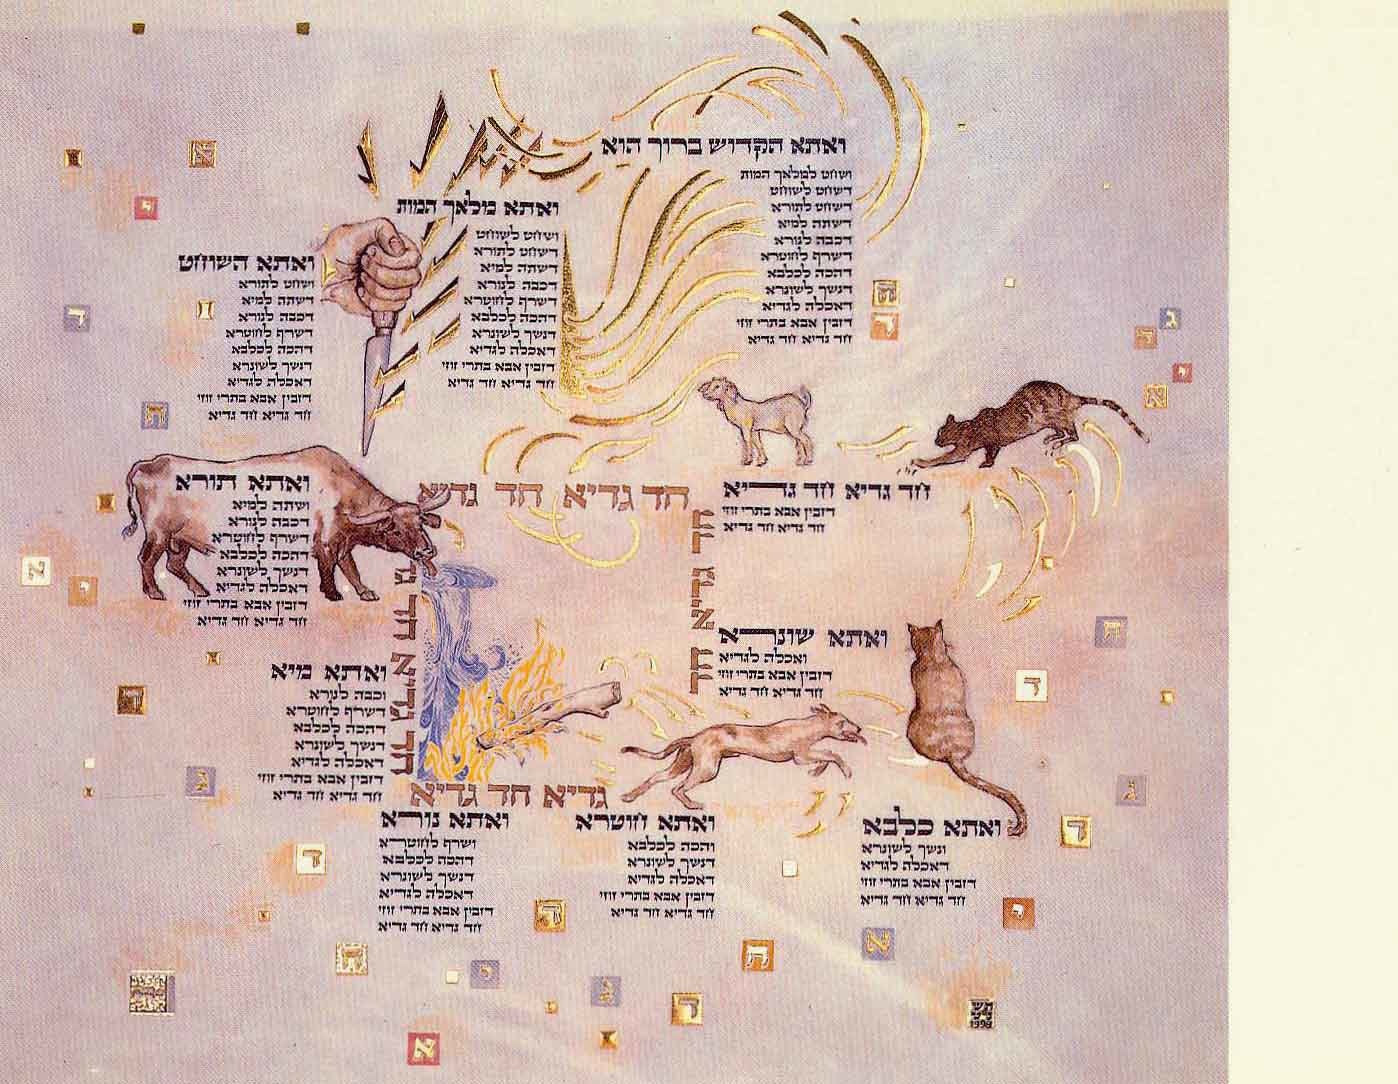 חד גדיא חד גדיא
דזבין אבא בתרי זוזי
חד גדיא חד גדיא
ואתא שונרא
ואכלה לגדיא
דזבין אבא בתרי זוזי
חד גדיא חד גדיא
ואתא כלבא
ונשך לשונרא
דאכלה לגדיא
דזבין אבא בתרי זוזי
חד גדיא חד גדיא
ואתא חוטרא
והכה לכלבא
דנשך לשונרא
דאכלה לגדיא
דזבין אבא בתרי זוזי
חד גדיא חד גדיא
ואתא נורא
ושרף לחוטרא
דהכה לכלבא
דנשך לשונרא
דאכלה לגדיא
דזבין אבא בתרי זוזי
חד גדיא חד גדיא
ואתא מיא
וכבה לנורא
דשרף לחוטרא
דהכה לכלבא
דנשך לשונרא
דאכלה לגדיא
דזבין אבא בתרי זוזי
חד גדיא חד גדיא
ואתא תורא
ושתה למיא
דכבה לנורא
דשרף לחוטרא
דהכה לכלבא
דנשך לשונרא
דאכלה לגדיא
דזבין אבא בתרי זוזי
חד גדיא חד גדיא
ואתא השוחט
ושחט לתורא
דשתה למיא
דכבה לנורא
דשרף לחוטרא
דהכה לכלבא
דנשך לשונרא
דאכלה לגדיא
דזבין אבא בתרי זוזי
חד גדיא חד גדיא
ואתא מלאך המות
ושחט לשוחט
דשחט לתורא
דשתה למיא
דכבה לנורא
דשרף לחוטרא
דהכה לכלבא
דנשך לשונרא
דאכלה לגדיא
דזבין אבא בתרי זוזי
חד גדיא חד גדיא
ואתא הקדוש ברוך הוא
ושחט למלאך המות
דשחט לשוחט
דשחט לתורא
דשתה למיא
דכבה לנורא
דשרף לחוטרא
דהכה לכלבא
דנשך לשונרא
דאכלה לגדיא
דזבין אבא בתרי זוזי
חד גדיא חד גדיא
חד גדיא חד גדיא
חד גדיא חד
גדיא חד גדיא
חד גדיא חד גד
1998